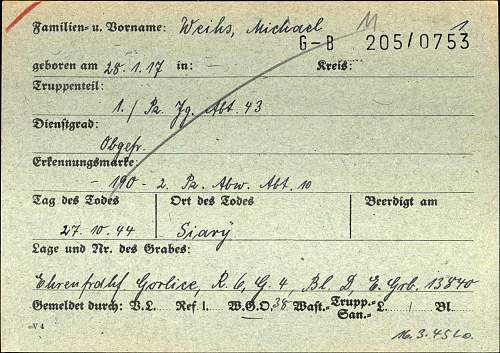 Familien- u. Vorname: Weihs, Michael 11 1
G-B 205/0753
geboren am 28.1.17 in: — Kreis:
Truppenteil:
1./ Pz. Jg. Abt. 43
Dienstgrad:
Obgefr.
Erkennungsmarke:
- 190 - 2. Pz. Abw. Abt. 10
Tag des Todes Ort des Todes Beerdigt am
27.10.44 Siary
Lage und Nr. des Grabes:
Ehrenfrdhf Gorlice, R. 6, G. 4, Bl. D, E. Grb. 13840
Gemeldet durch: V.L. Ref. I. W.G.O. 38 Wast.- Trupp.- San.- L. / Bl.
V 4
16.3.45